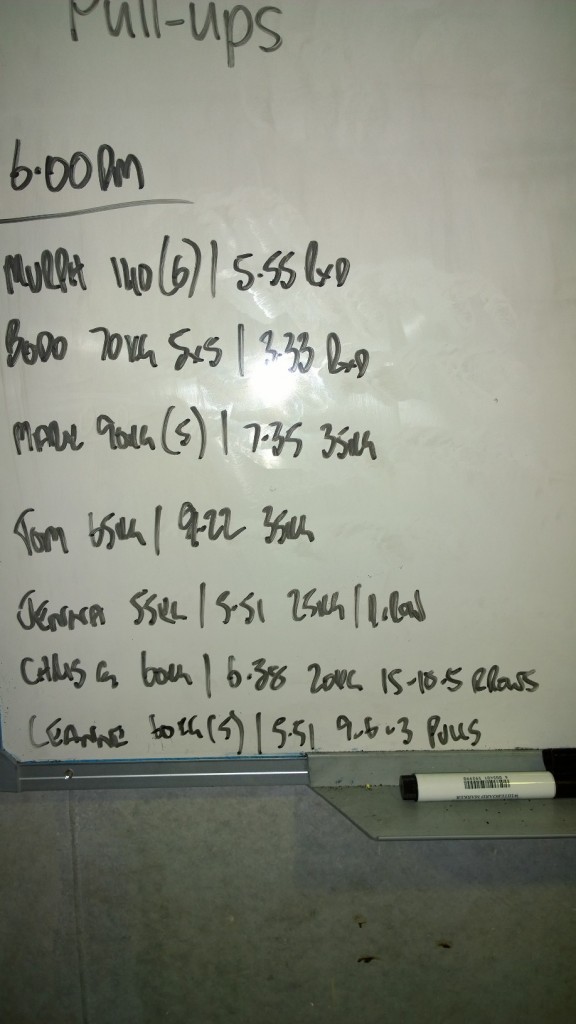 Pull-ups
6.00PM
MURPH 140(6) | 5.55 RxD
BODO 70KG 5x5 | 3.33 RxD
MARK 90KG (5) | 7.35 35KG
TOM 65KG | 9.22 35KG
JENNA 55KG | 5.51 25KG |
CHRIS G 60KG | 6.38 20KG 15-10-5 RROWS
LEANNE 60KG(5) | 5.51 9-6-3 PULLS